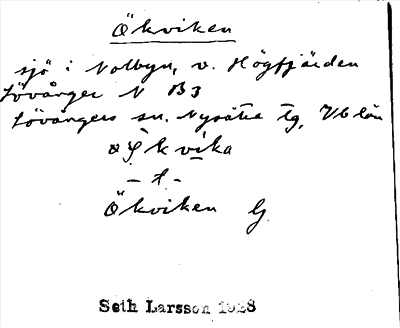 Ökviken
sjö i Nolbyn, v. Högfjärden
Lövånger N B3
Lövångers sn. Nysätra tg, Vb län
kvika
- t -
Ökviken G
Seth Larsson 1928